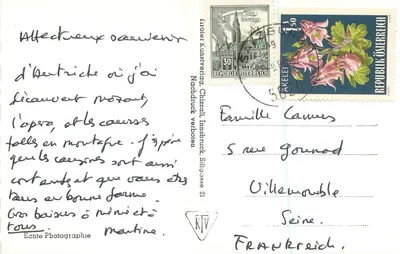 Affectueux souvenir
d'Autriche où j'ai
découvert Mozart,
l'opéra, et les courses
folles en montagne. J'espère
que les cousins sont aussi
contents et que vous êtes
tous en bonne forme.
Gros baisers à mimi et à
tous. Martine.
Echte Photographie
Tiroler Kunstverlag, Chizzali, Innsbruck, Sillgasse 21
Nachdruck verboten
KTV
REPUBLIK ÖSTERREICH
AKELEI
1.50
REPUBLIK ÖSTERREICH
Famille Camus
5 rue Gounod
Villemomble
Seine.
Frankreich.